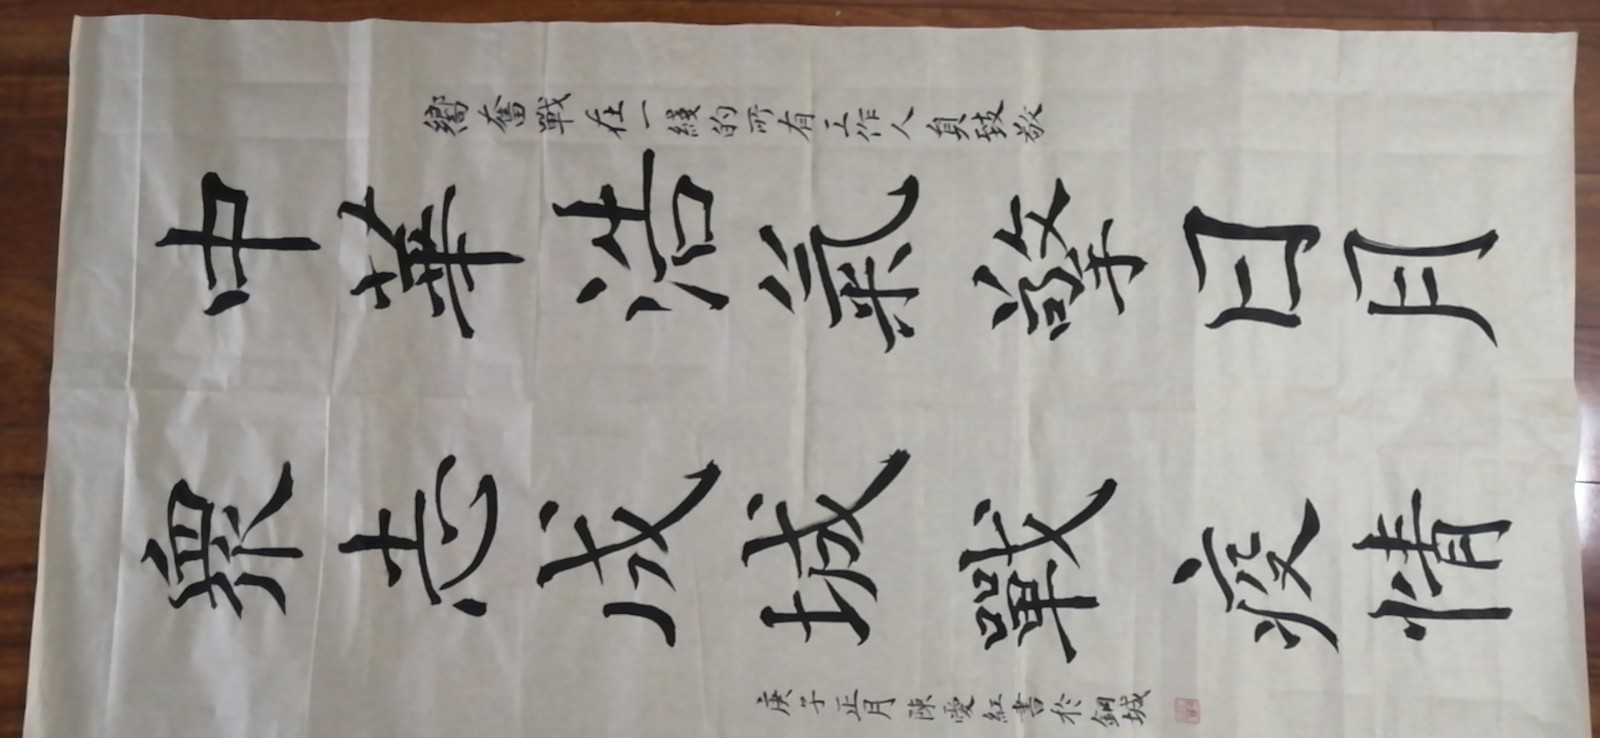 嚮奮戰在一線的所有工作人員致敬
中華浩氣擎日月
衆志成城戰疫情
庚子正月陳愛紅書於鋼城